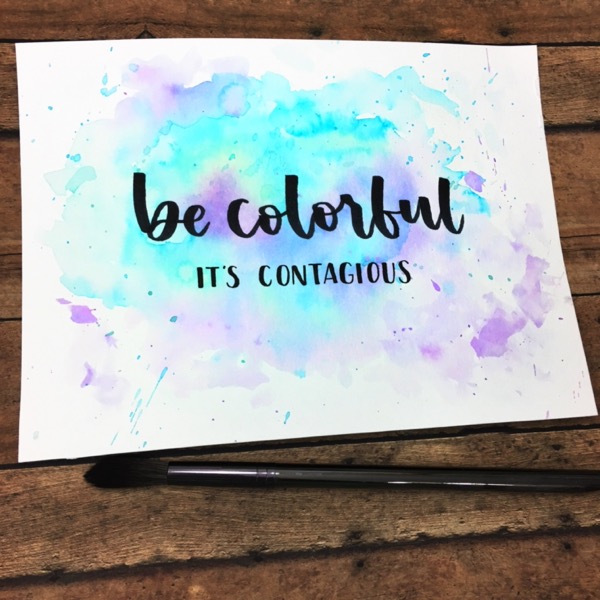 be colorful
IT'S CONTAGIOUS